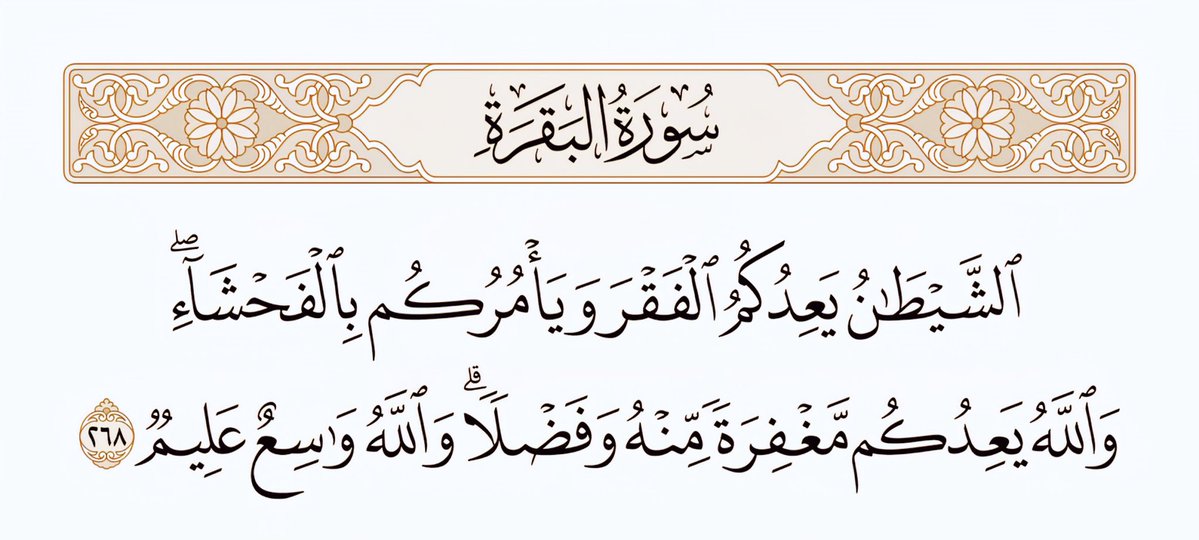 سُورَةُ البَقَرَةِ
ٱلشَّيْطَٰنُ يَعِدُكُمُ ٱلْفَقْرَ وَيَأْمُرُكُم بِٱلْفَحْشَآءِ ۖ
وَٱللَّهُ يَعِدُكُم مَّغْفِرَةً مِّنْهُ وَفَضْلًا ۗ وَٱللَّهُ وَٰسِعٌ عَلِيمٌ ٢٦٨